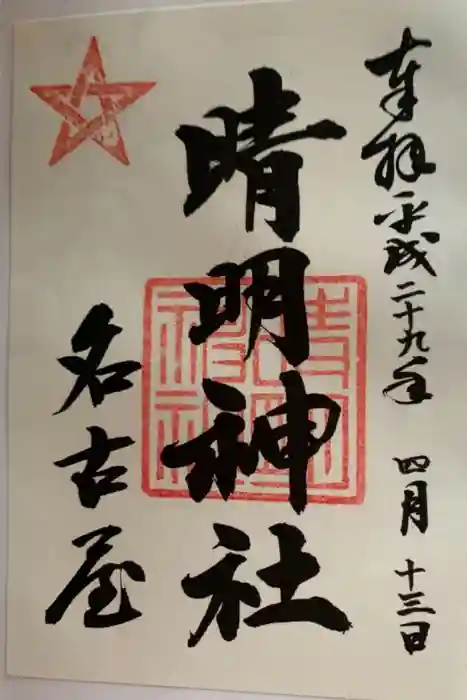 奉拝 平成二十九年 四月 十三日
晴明神社
名古屋